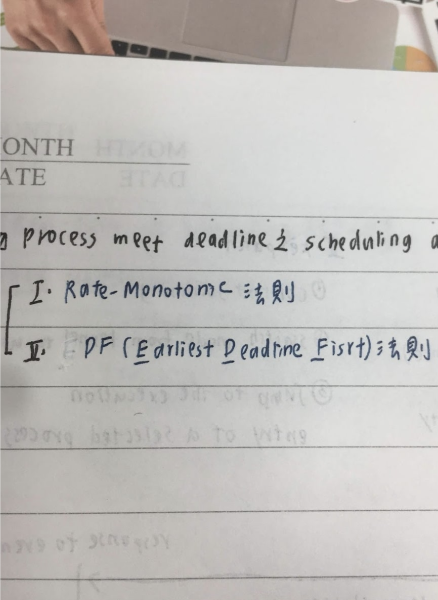 ONTH
ATE
process meet deadline 之 scheduling a
I. Rate-Monotonic 法則
II. DF (Earliest Deadline Fisrt) 法則